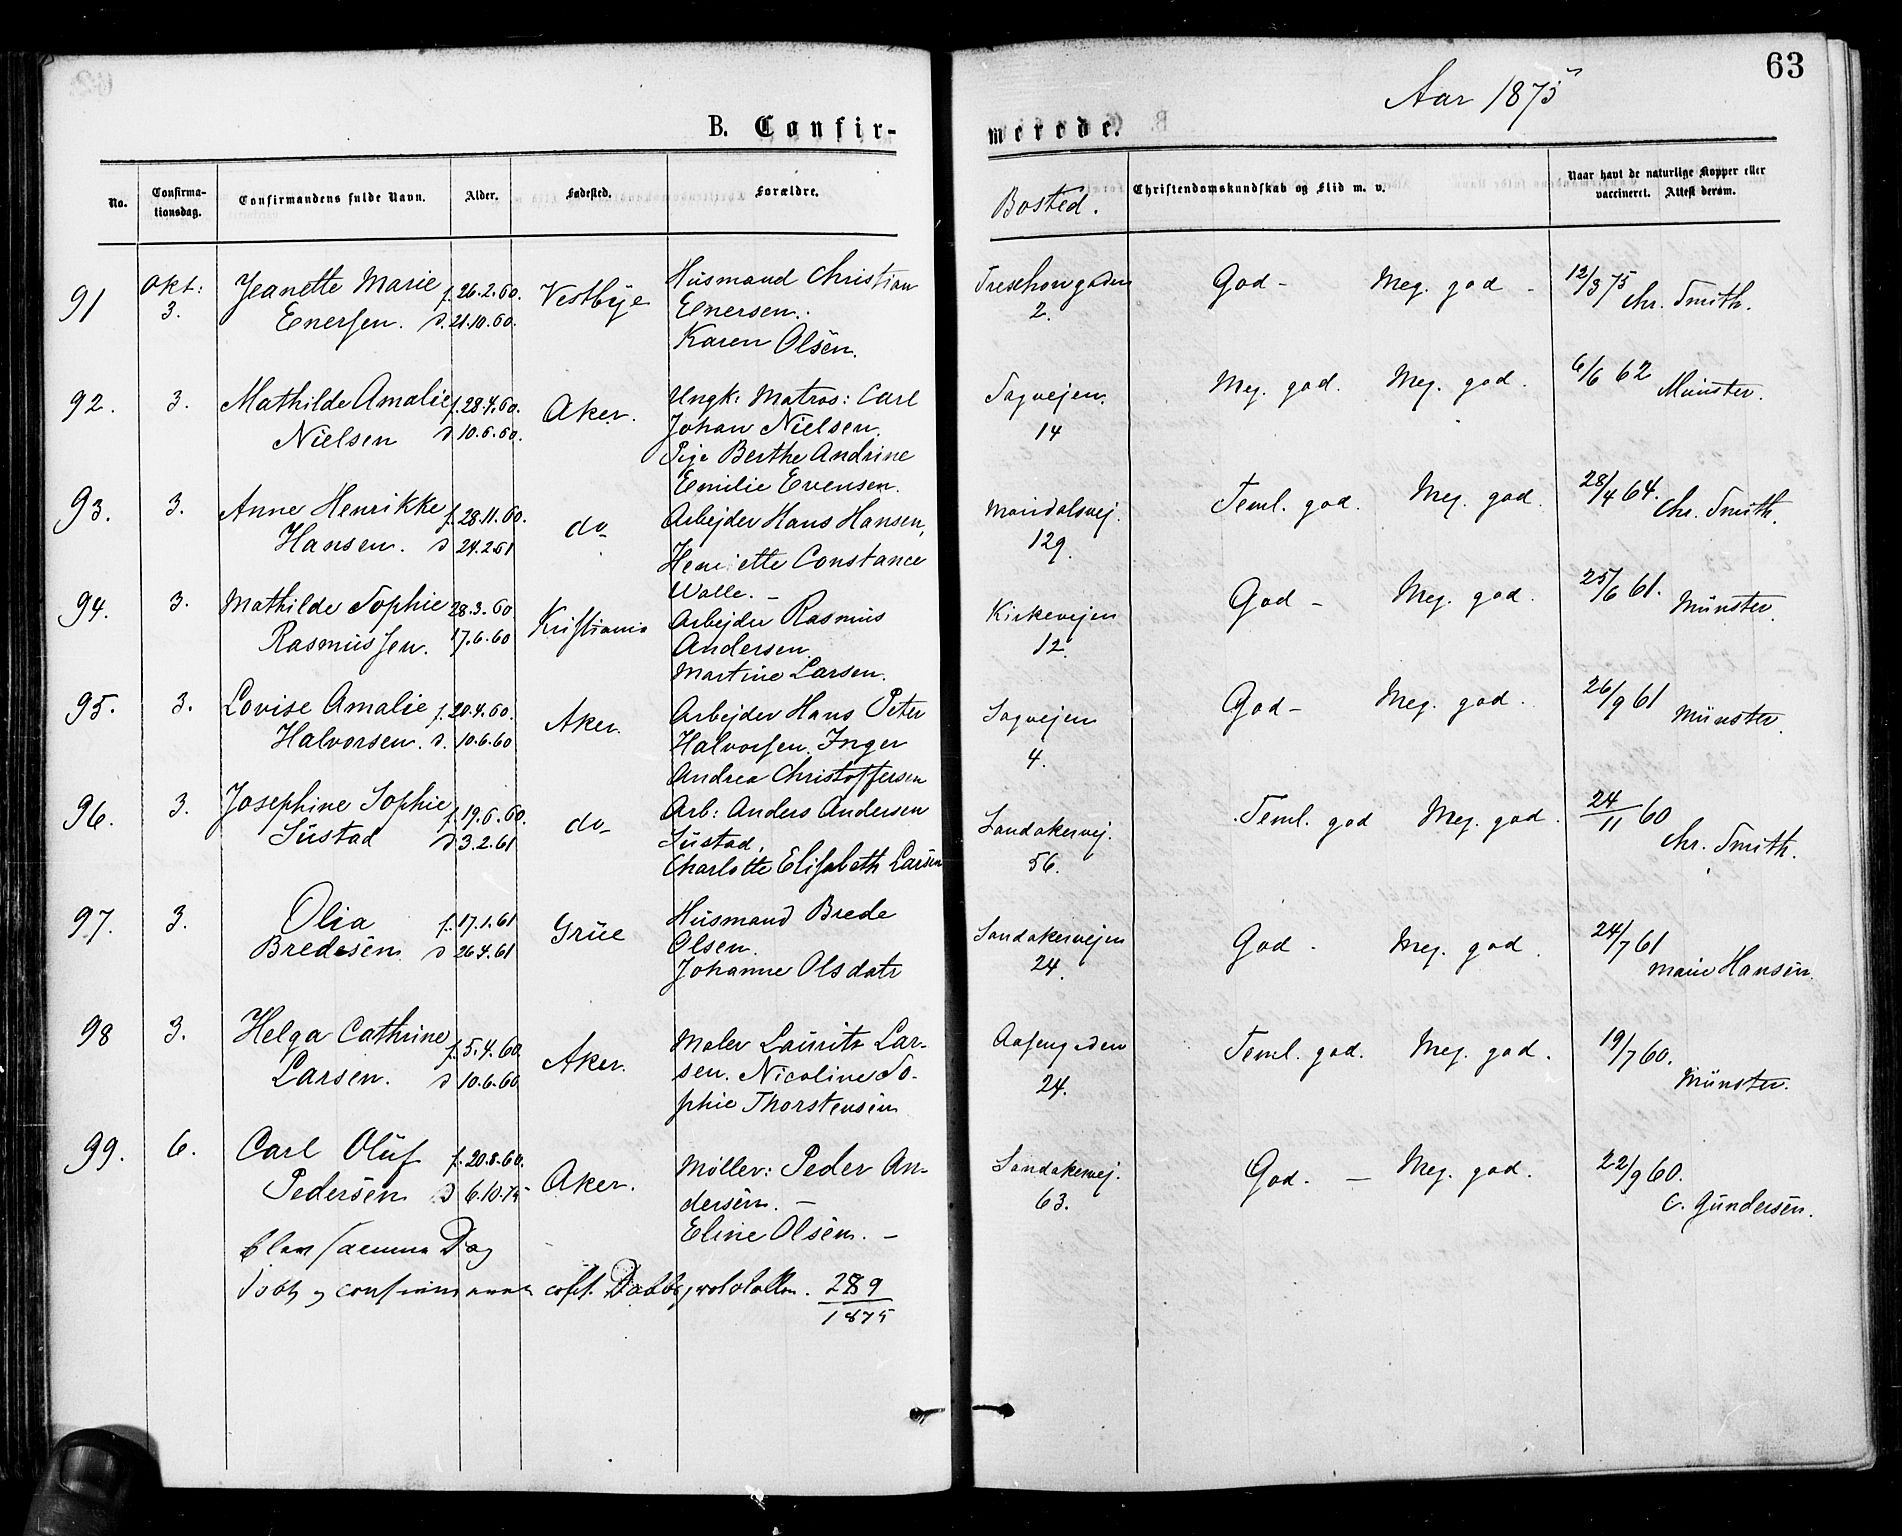 63
Aar 1875
B. Confir-
merede.
No.
Confirma-
tionsdag.
Confirmandens fulde Navn.
Alder.
Fødested.
Forældre.
Bosted.
Christendomskundskab og Flid m. v.
Naar havt de naturlige Kopper eller
vaccineret. Attest derom.
91 Okt: 3. Jeanette Marie f. 26.2.60. Vestbye Husmand Christian Treschowgaden God - Meg. god - 12/3 75 Chr. Smith.
Enersen. d. 21.10.60. Enersen. 2.
Karen Olsen.
92. 3. Mathilde Amalie f. 28.4.60. Aker. Ungk: Matros: Carl Sagvejen. Meg. god. Meg. god. 6/6 62 Münster.
Nielsen d 10.6.60. Johan Nielsen. 14
Pige Berthe Andrine
Emilie Evensen.
93. 3. Anne Henrikke f. 28.11.60. do Arbejder Hans Hansen, Maridalsvej. Teml. god. Meg. god. 28/4 64. Chr. Smith.
Hansen. d 24.2.61 Henriette Constance 129.
Walle. -
94. 3. Mathilde Sophie 28.3.60 Kristiania Arbejder Rasmus Kirkevejen God - Meg. god. 25/6 61. Münster.
Rasmussen. 17.6.60 Andersen. 12.
Martine Larsen.
95. 3. Lovise Amalie f. 20.4.60. Aker. Arbejder Hans Peter Sagvejen God - Meg. god. 26/9 61 Münster.
Halvorsen. d. 10.6.60 Halvorsen. Inger 4.
Andrea Christoffersen
96. 3. Josephine Sophie f. 19.6.60. do Arb: Anders Andersen Sandakervej. Teml. god Meg. god. 24/11 60 Chr. Smith.
Sustad d 3.2.61 Sustad, 56.
Charlotte Elisabeth Larsen
97. 3. Olia f. 17.1.61 Grue Husmand Brede Sandakervejen God - Meg. god. 24/7 61 Marie Hansen.
Bredesen d 26.4.61 Olsen. 24.
Johanne Olsdatr
98 3. Helga Cathrine f. 5.4.60 Aker. Maler Lauritz Lar- Aasengaden Teml. god. Meg. god. 19/7 60. Münster.
Larsen. d 10.6.60 sen. Nicoline So- 24.
phie Thorstensen
99. 6. Carl Oluf f. 20.8.60. Aker. Møller: Peder An- Sandakervej. God. - Meg. god. 22/9 60. C. Gundersen.
Pedersen d 6.10.75 dersen. - 63.
Eline Olsen. -
blev samme Dag
døbt og confirmeret cfr. Daabsprotokollen. 289
1875